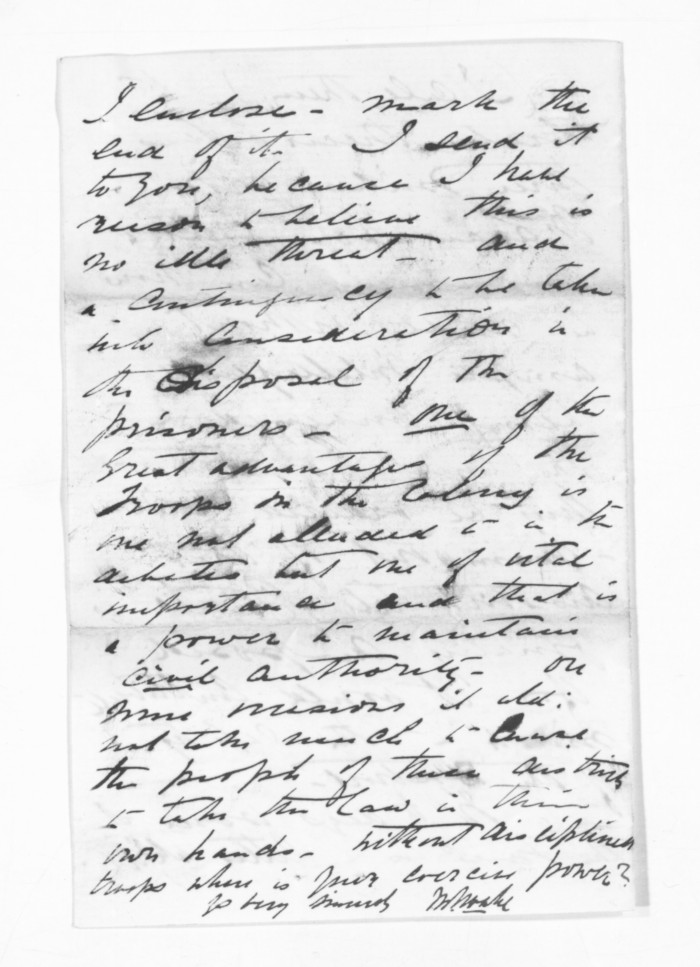 I enclose - mark the
end of it - I send it
to you, because I have
reason to believe this is
no idle threat - and
a contingency to be taken
into consideration in
the disposal of the
prisoners - One of the
Great advantages of the
Troops in the Colony is
one not alluded to in the
debates but one of vital
importance and that is
a power to maintain
civil authority - on
some occasions it wld:
not take much to cause
the people of these districts
to take the law in their
own hands - without disciplined
troops where is your coercive power?
Yrs very sincerely